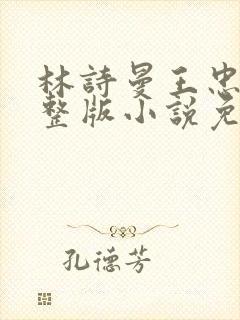 林詩曼王忠
整版小說免
孔德芳